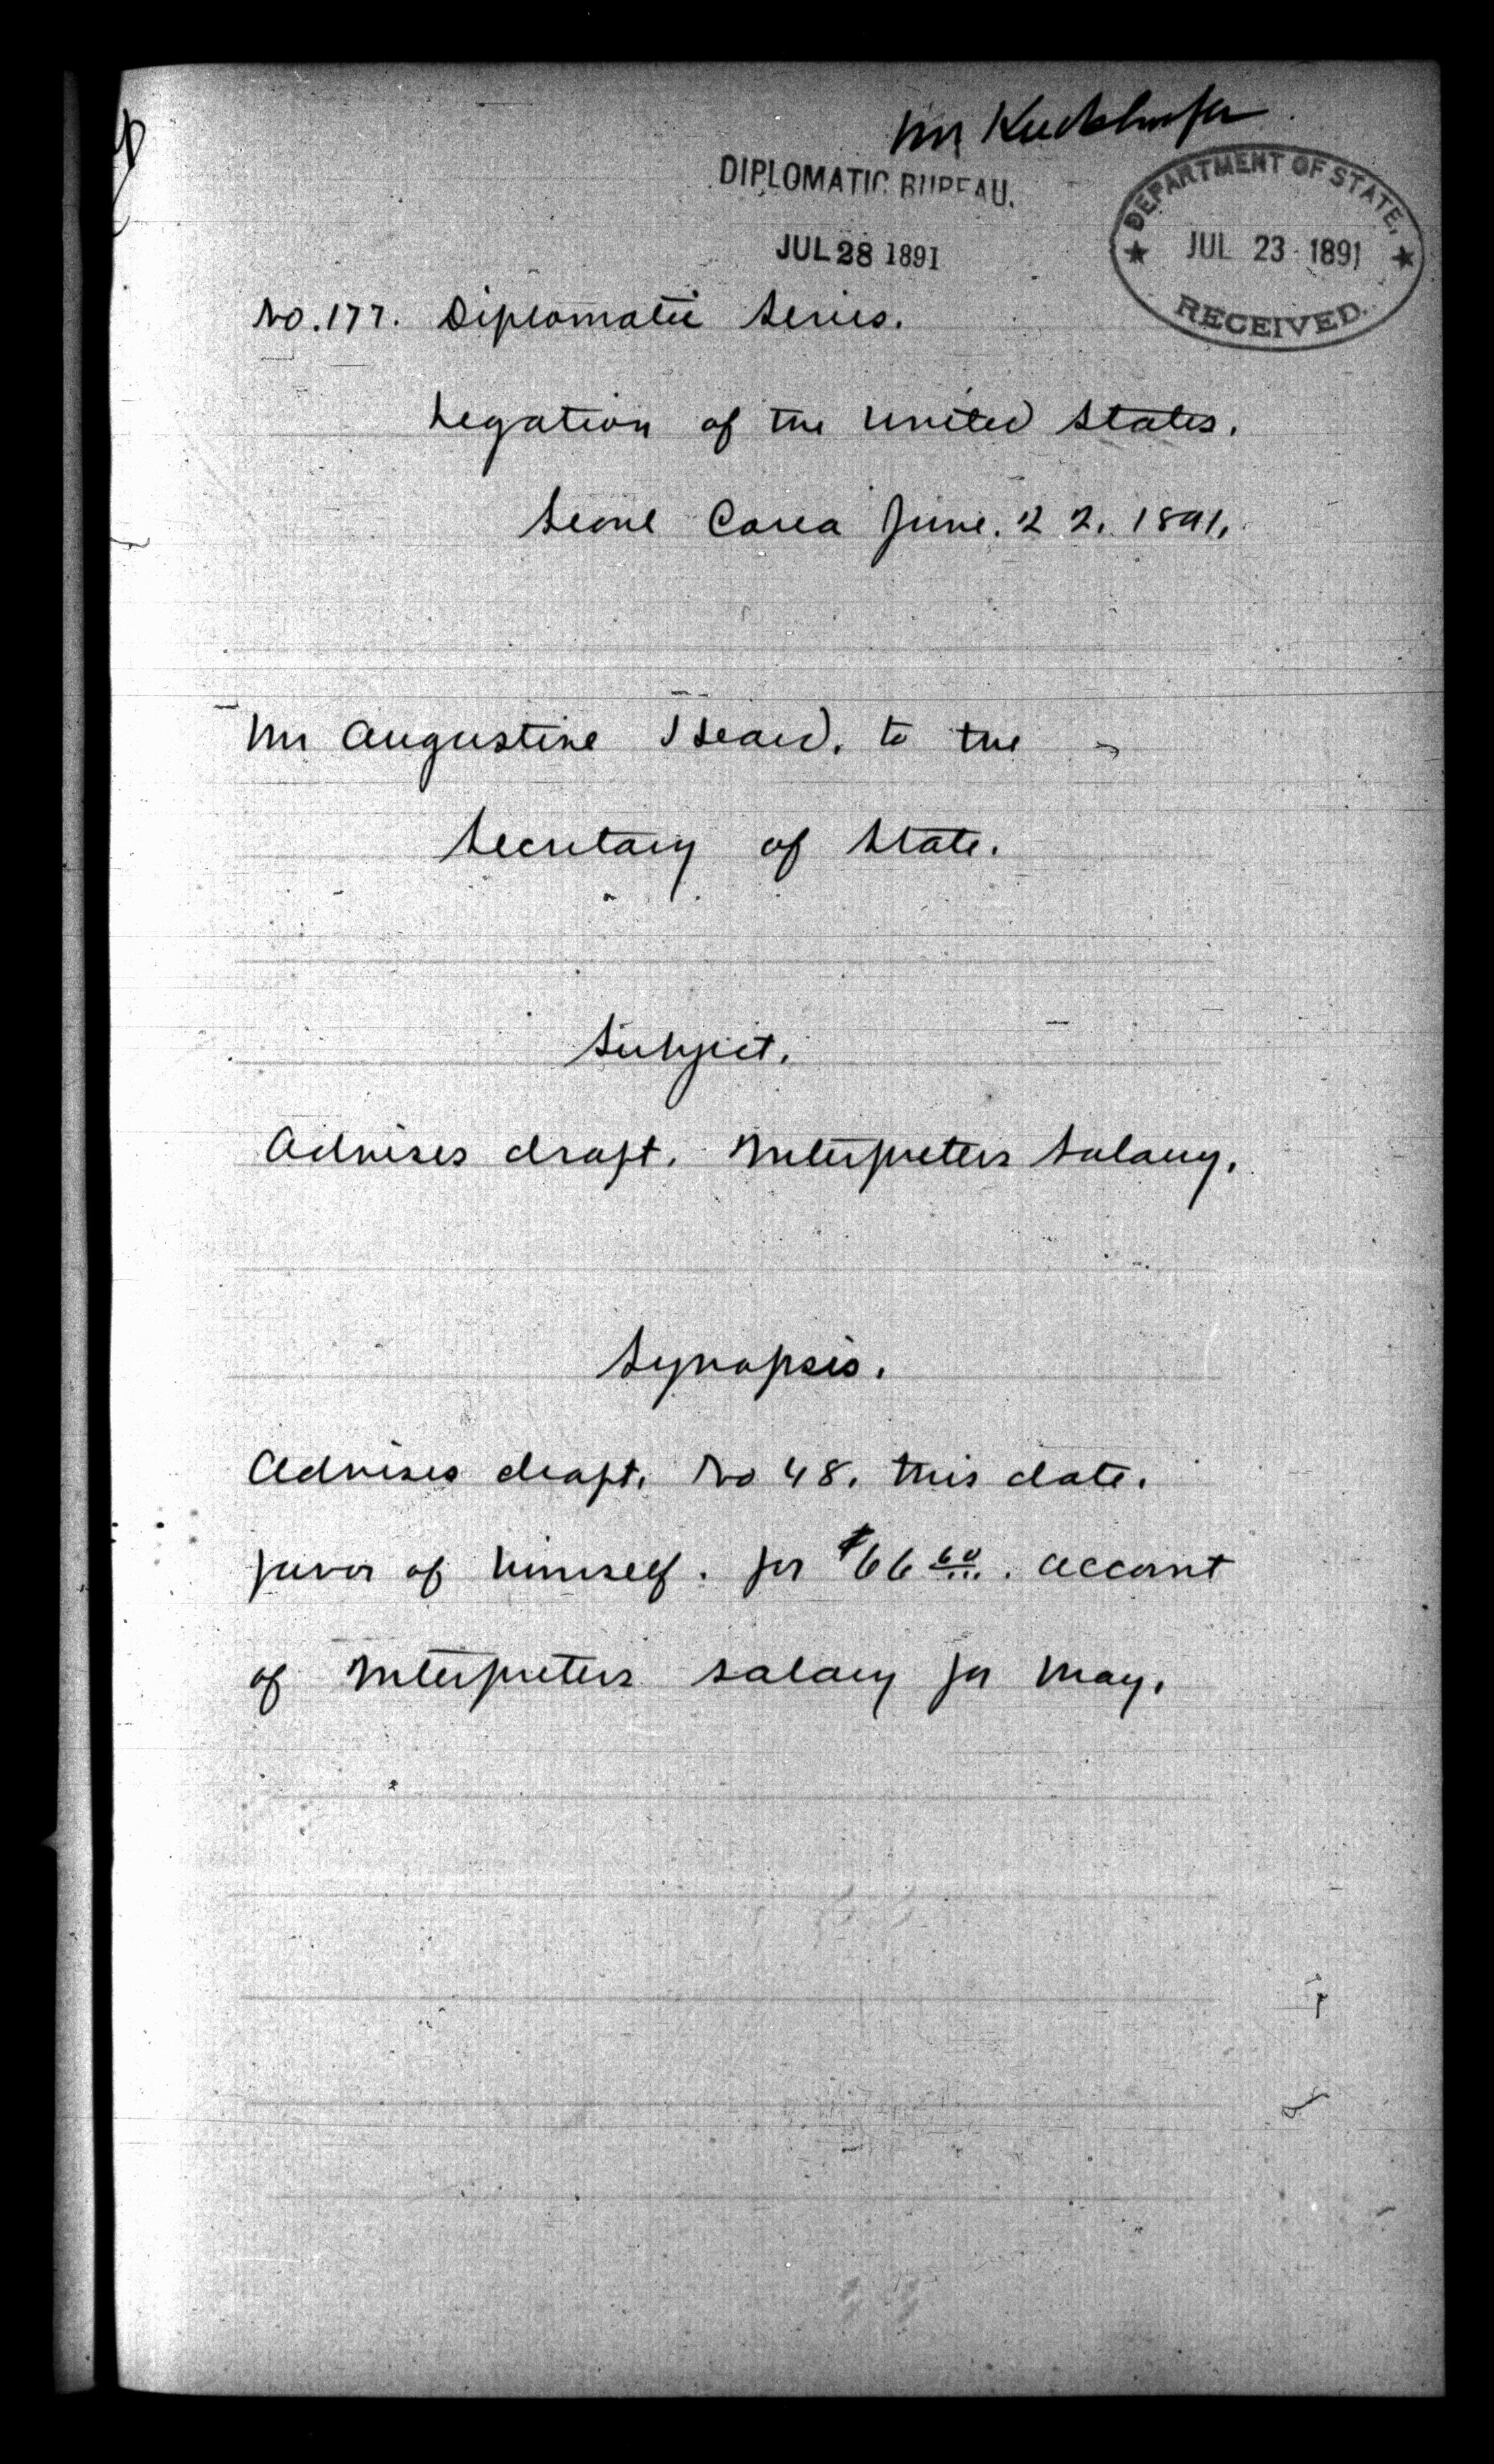 Mr Kieckhoefer
DIPLOMATIC BUREAU.
JUL 28 1891
DEPARTMENT OF STATE,
JUL 23 1891
RECEIVED.
No. 177. Diplomatic Series.
Legation of the United States.
Seoul Corea June. 22. 1891.
Mr Augustine Heard. to the
Secretary of State.
Subject.
Advises draft. Interpreters Salary.
Synopsis.
Advises draft. No 48. this date.
favor of himself. for $66 60/... . account
of Interpreters salary for May.